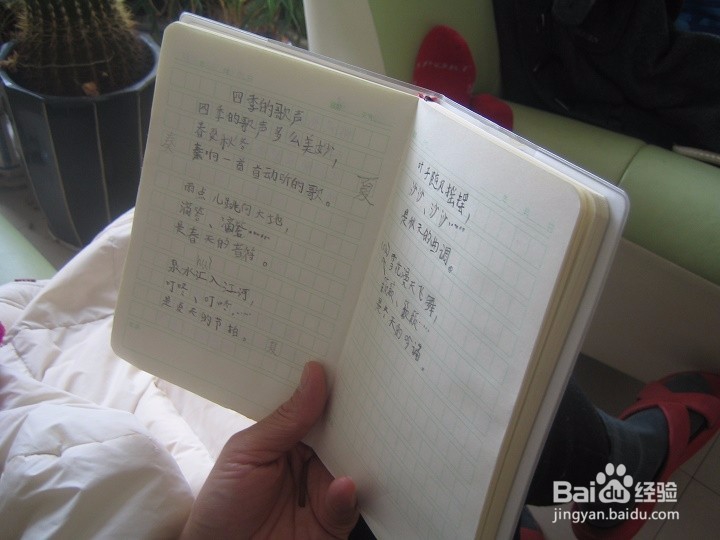 四季的歌声
四季的歌声多么美妙,
春夏秋冬
一首首动听的歌。
雨点儿跳向大地,
滴答、滴答……
是春天的
泉水汇入江河,
叮咚、叮咚…
是夏天的节拍。
夏
夏
夏
叶子随风摇摆,
沙沙、沙沙……
是秋天的曲调。
雪花漫天飞舞,
簌簌、簌簌…
是冬天的吟诵。
SPORT
Baidu经验
jingyan.baidu.com